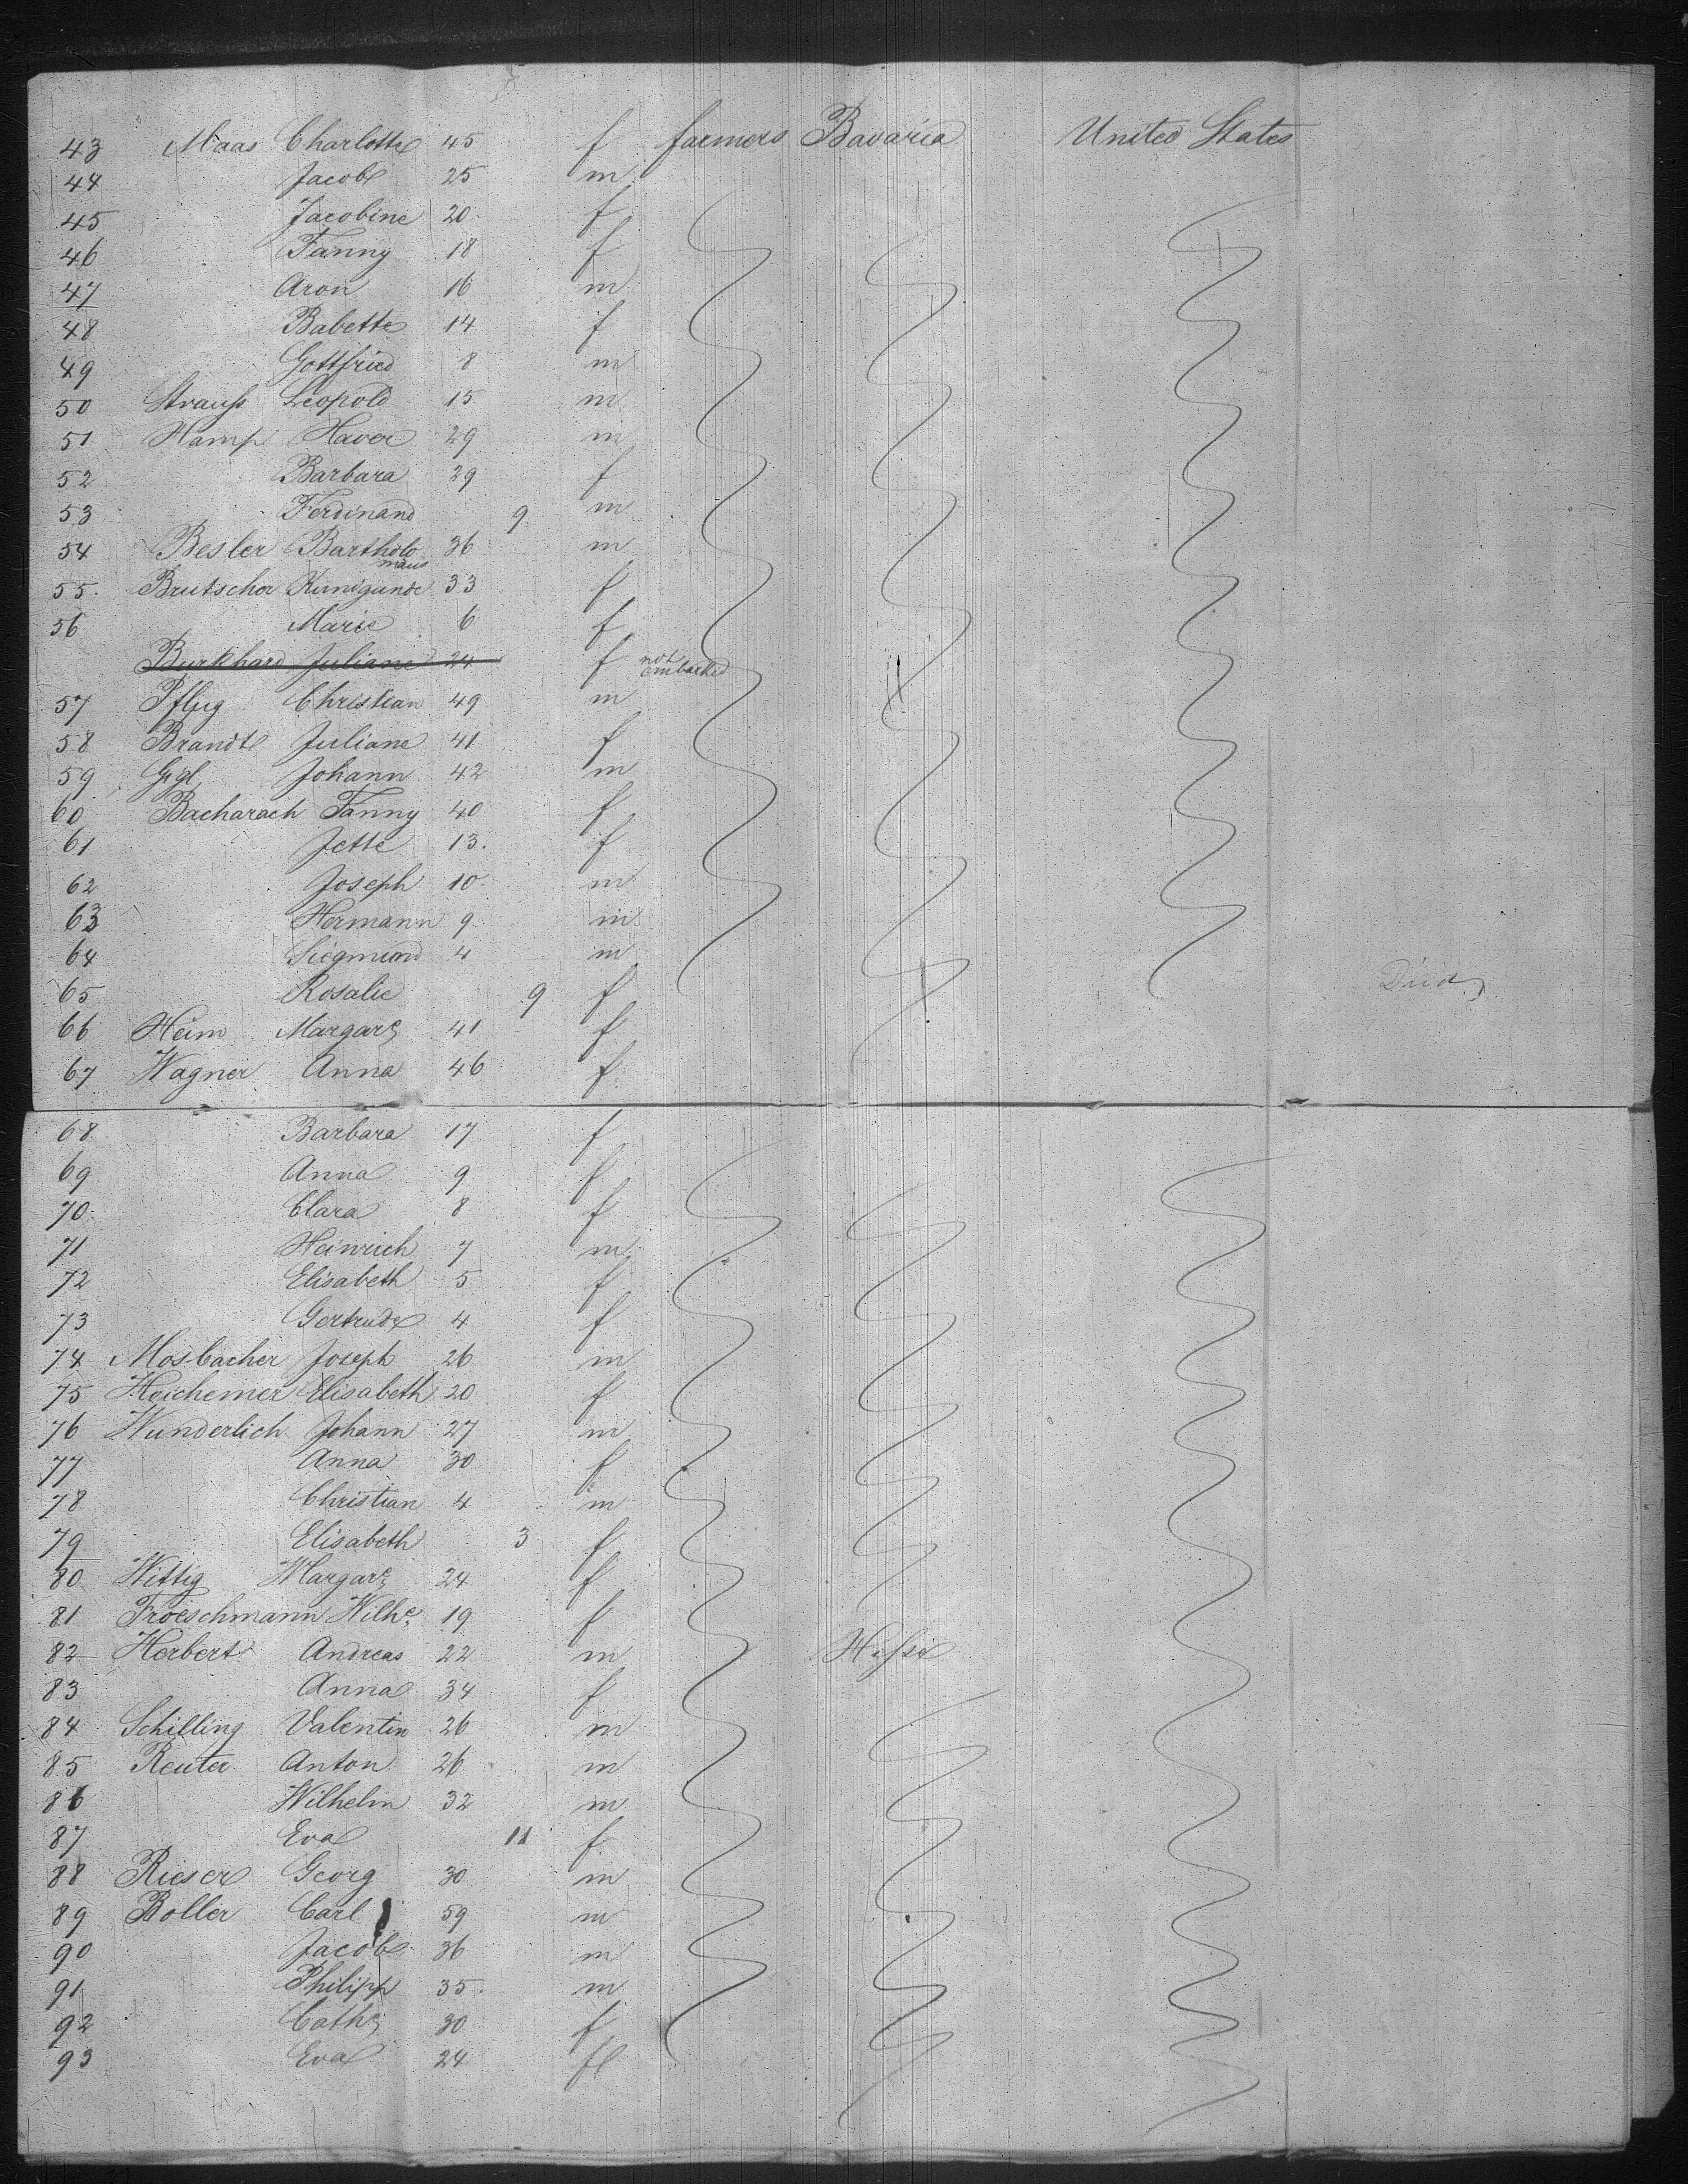 43 Maas Charlotte 45 f farmers Bavaria United States
44 Jacob 25 m
45 Jacobine 20 f
46 Fanny 18 f
47 Aron 16 m
48 Babette 14 f
49 Gottfried 8 m
50 Strauss Leopold 15 m
51 Hamp Xaver 29 m
52 Barbara 29 f
53 Ferdinand 9 m
54 Besler Bartholo 36 m
mäus
55. Brutscher Kunigunde 33 f
56 Marie 6 f
Burkhard Juliane 24 f not embarked
57 Pflug Christian 49 m
58 Brandt Juliane 41 f
59 Gigl Johann 42 m
60 Bacharach Fanny 40 f
61 Jette 13. f
62 Joseph 10. m
63 Hermann 9 m
64 Siegmund 4 m
65 Rosalie 9 f Died
66 Heim Margar. 41 f
67 Wagner Anna 46 f
68 Barbara 17 f
69 Anna 9 f
70. Clara 8 f
71 Heinrich 7 m
72 Elisabeth 5 f
73 Gertrude 4 f
74 Mosbacher Joseph 26 m
75 Heichemer Elisabeth 20 f
76 Wunderlich Johann 27 m
77 Anna 30 f
78 Christian 4 m
79 Elisabeth 3 f
80 Wittig Margar. 24 f
81 Froeschmann Wilhe. 19 f
82 Herbert Andreas 22 m Hesse
83 Anna 34 f
84 Schilling Valentin 26 m
85 Reuter Anton 26 m
86 Wilhelm 32 m
87 Eva 11 f
88 Rieser Georg 30 m
89 Boller Carl 59 m
90 Jacob 36 m
91 Philipp 35. m
92 Cath. 30 f
93 Eva 24 f